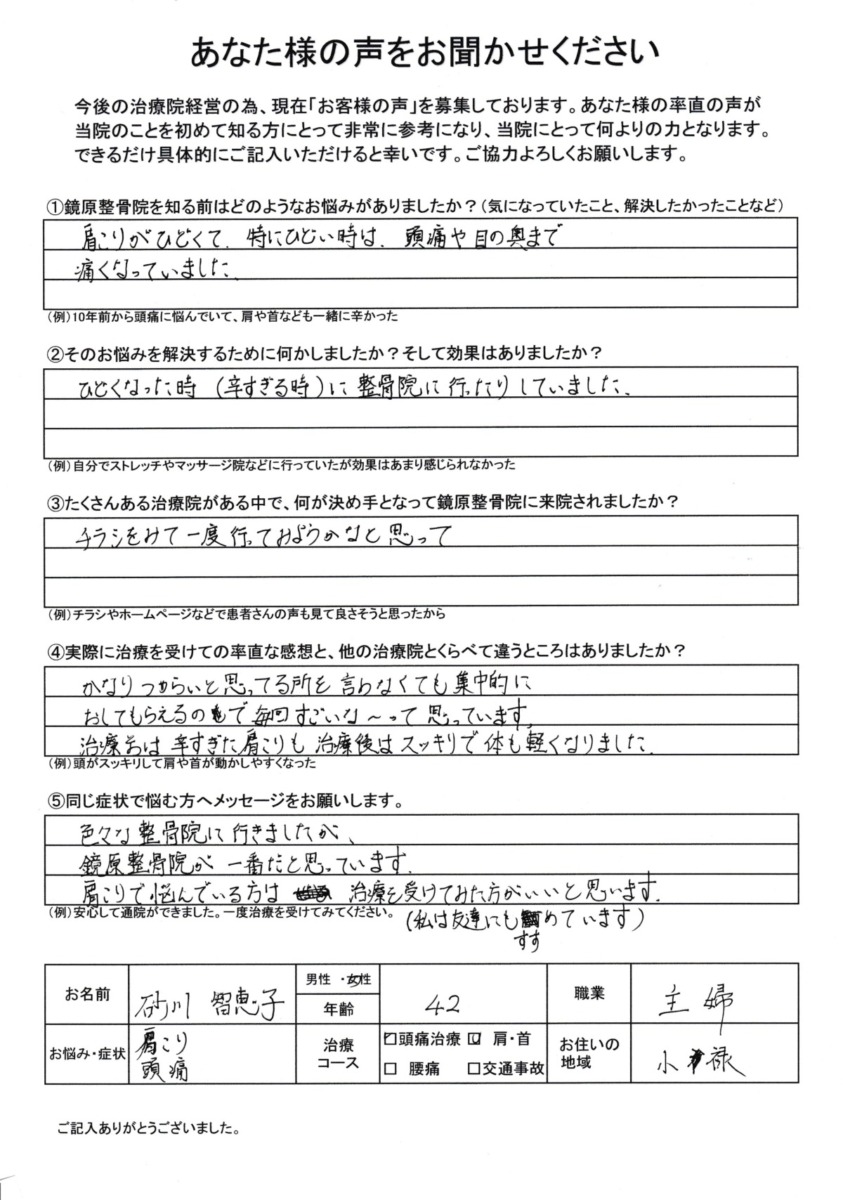 あなた様の声をお聞かせください
今後の治療院経営の為、現在「お客様の声」を募集しております。あなた様の率直の声が
当院のことを初めて知る方にとって非常に参考になり、当院にとって何よりの力となります。
できるだけ具体的にご記入いただけると幸いです。ご協力よろしくお願いします。
①鏡原整骨院を知る前はどのようなお悩みがありましたか？（気になっていたこと、解決したかったことなど）
肩こりがひどくて、特にひどい時は、頭痛や目の奥まで
痛くなっていました。
（例）10年前から頭痛に悩んでいて、肩や首なども一緒に辛かった
②そのお悩みを解決するために何かしましたか？そして効果はありましたか？
ひどくなった時（辛すぎる時）に整骨院に行ったりしていました。
（例）自分でストレッチやマッサージ院などに行っていたが効果はあまり感じられなかった
③たくさんある治療院がある中で、何が決め手となって鏡原整骨院に来院されましたか？
チラシをみて一度行ってみようかなと思って
（例）チラシやホームページなどで患者さんの声も見て良さそうと思ったから
④実際に治療を受けての率直な感想と、他の治療院とくらべて違うところはありましたか？
かなりつからいと思ってる所を言わなくても集中的に
おしてもらえるので毎回すごいな〜って思っています。
治療前は辛すぎた肩こりも治療後はスッキリで体も軽くなりました。
（例）頭がスッキリして肩や首が動かしやすくなった
⑤同じ症状で悩む方へメッセージをお願いします。
色々な整骨院に行きましたが、
鏡原整骨院が一番だと思っています。
肩こりで悩んでいる方は 治療を受けてみた方がいいと思います。
（例）安心して通院ができました。一度治療を受けてみてください。
（私は友達にもすすめています）
お名前 砂川 智恵子 男性・女性 年齢 42 職業 主婦
お悩み・症状 肩こり 頭痛 治療コース ☑頭痛治療 ☑肩・首 □腰痛 □交通事故 お住いの地域 小禄
ご記入ありがとうございました。